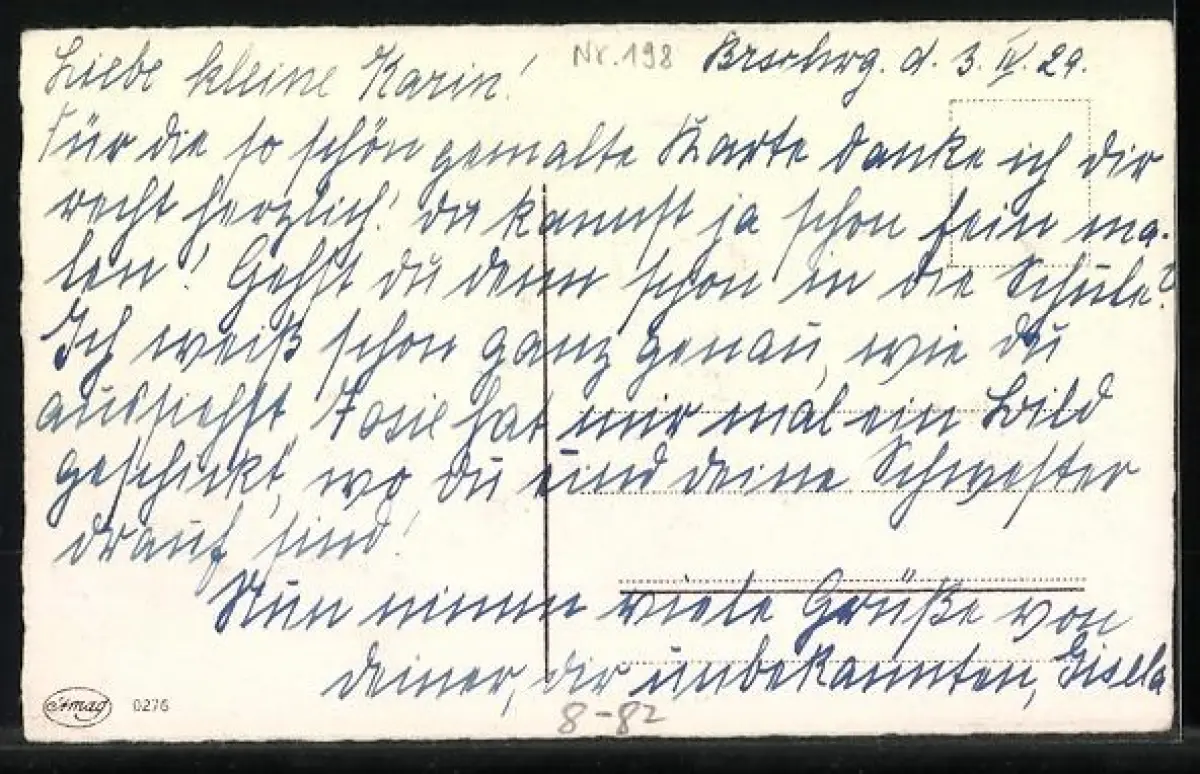 Nr. 198
d. 3. IV. 29.
Liebe kleine Karin!
Für die so schön gemalte Karte danke ich dir
recht herzlich! Du kannst ja schon fein ma-
len! Gehst du denn schon in die Schule?
Ich weiß schon ganz genau, wie du
aussiehst, hat mir mal ein Bild
geschickt, wo du und deine Schwester
drauf sind!
Nun nimm viele Grüße von
deiner, dir unbekannten, Gisela
Amag 0276
8-82